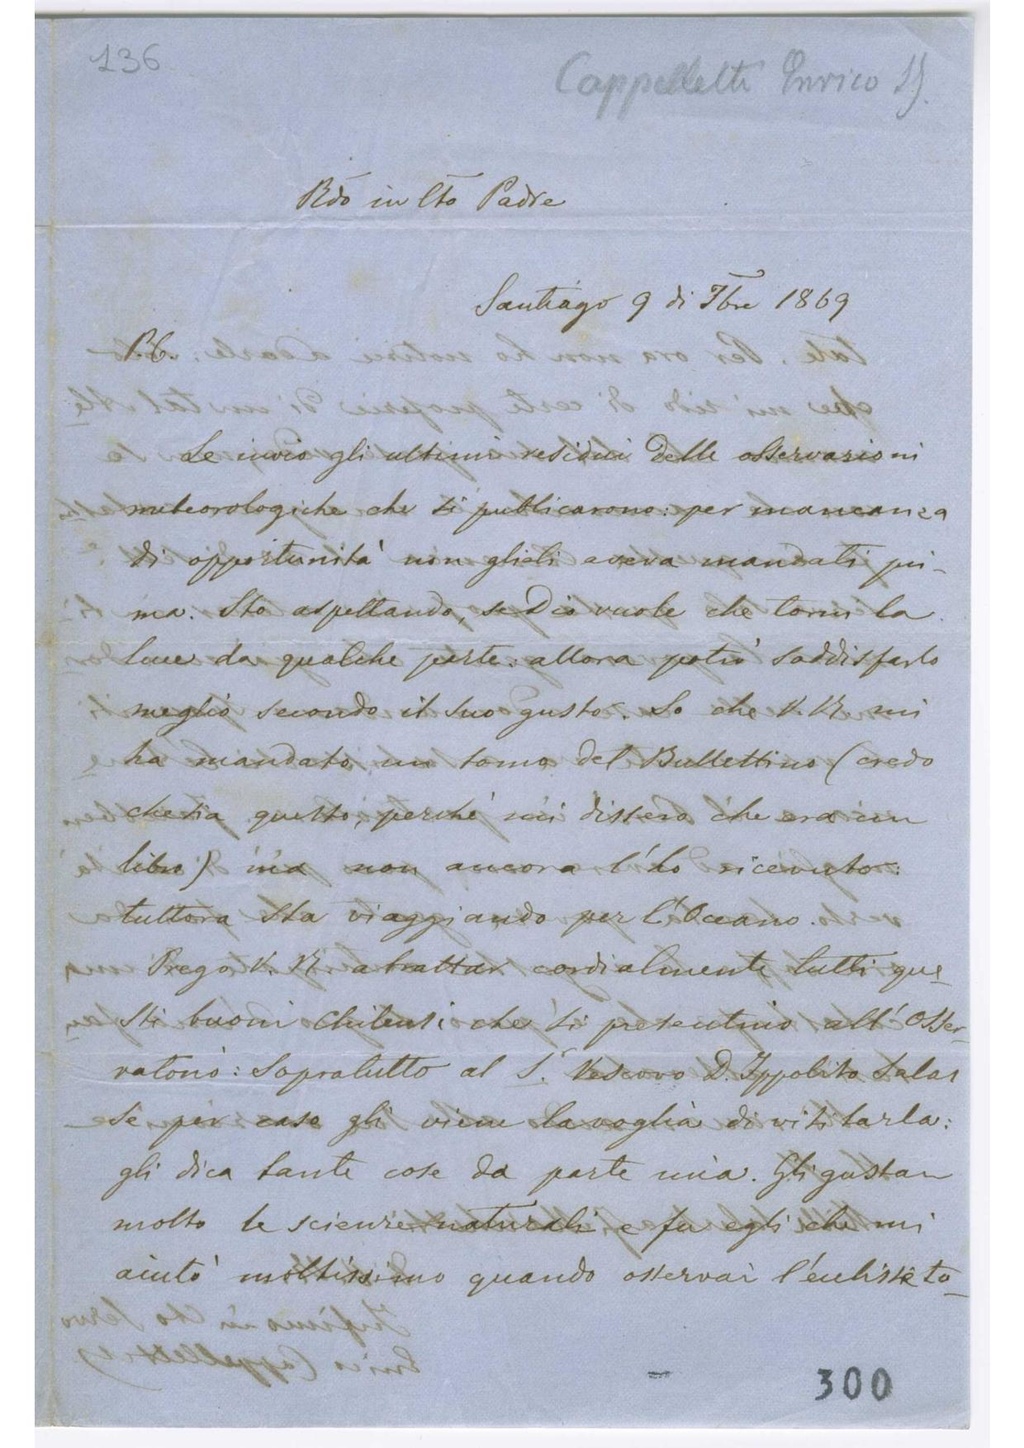 136
Cappelletti Enrico SJ.
Rdo in Cto Padre
Santiago 9 di 7bre 1869
P.C.
Le invio gli ultimi residui delle osservazioni
meteorologiche che si publicarono: per mancanza
di opportunità non glieli aveva mandati pri-
ma. Sto aspettando, se Dio vuole che torni la
luce da qualche parte: allora potrò soddisfarlo
meglio secondo il suo gusto. So che V. R. mi
ha mandato un tomo del Bullettino (credo
che sia questo, perché mi dissero che era un
libro) ma non ancora l'ho ricevuto:
tuttora sta viaggiando per l'Oceano.
Prego V. R. a trattar cordialmente tutti que-
sti buoni Chilensi che si presentino all'Osser-
vatorio: sopratutto al Sr. Vescovo D. Ippolito Salas
se per caso gli viene la voglia di visitarla:
gli dica tante cose da parte mia. Gli gustan
molto le scienze naturali e fu egli che mi
aiutò moltissimo quando osservai l'eclisse to-
300